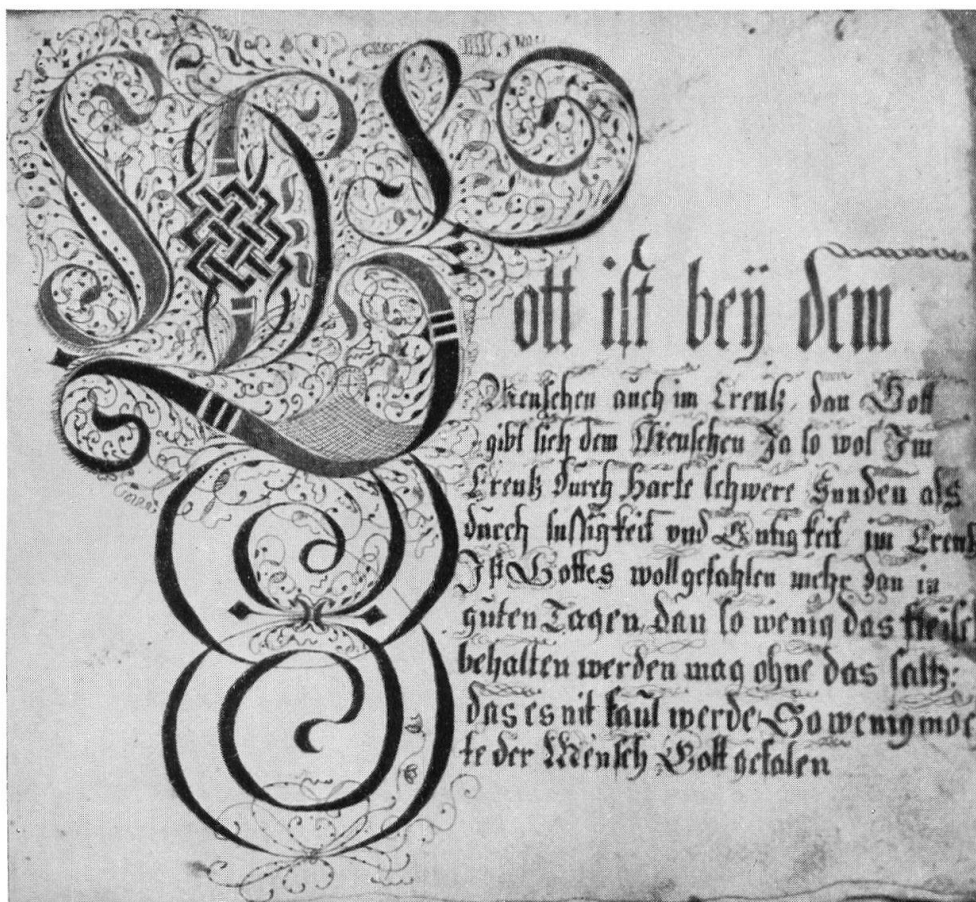 Gott ist beÿ dem
Menschen auch im Creutz, dan Gott
gibt sich dem Menschen Ja so wol Im
Creutz durch Harte schwere Sunden als
durch lustigkeit vnd Gutigkeit im Creutz
Ist Gottes wollgefahlen mehr dan in
guten Tagen dan so wenig das fleisch
behalten werden mag ohne das saltz:
das es nit faul werde So wenig moc
te der Mensch Gott gefalen